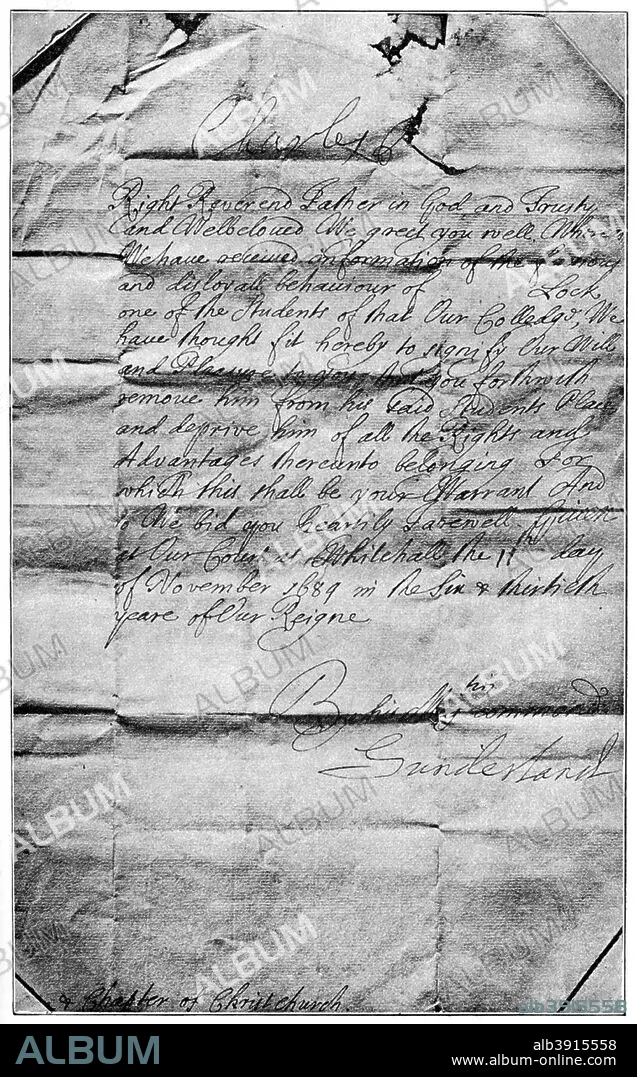 Charles R
Right Reverend Father in God, and Trusty
and Welbeloved We greet you well. Whereas
We have received information of the factious
and disloyall behaviour of Lock
one of the Students of that Our Colledge; We
have thought fit hereby to signify Our Will
and Pleasure to you, that you forthwith
remove him from his said Students Place
and deprive him of all the Rights and
Advantages thereunto belonging For
which this shall be your Warrant And
so We bid you heartily Farewell. Given
at Our Court at Whitehall the 11th day
of November 1684 in the Six & thirtieth
yeare of Our Reigne
By his Maj.ties command
Sunderland
& Chapter of Christchurch.
ALBUM
alb3915558
www.album-online.com